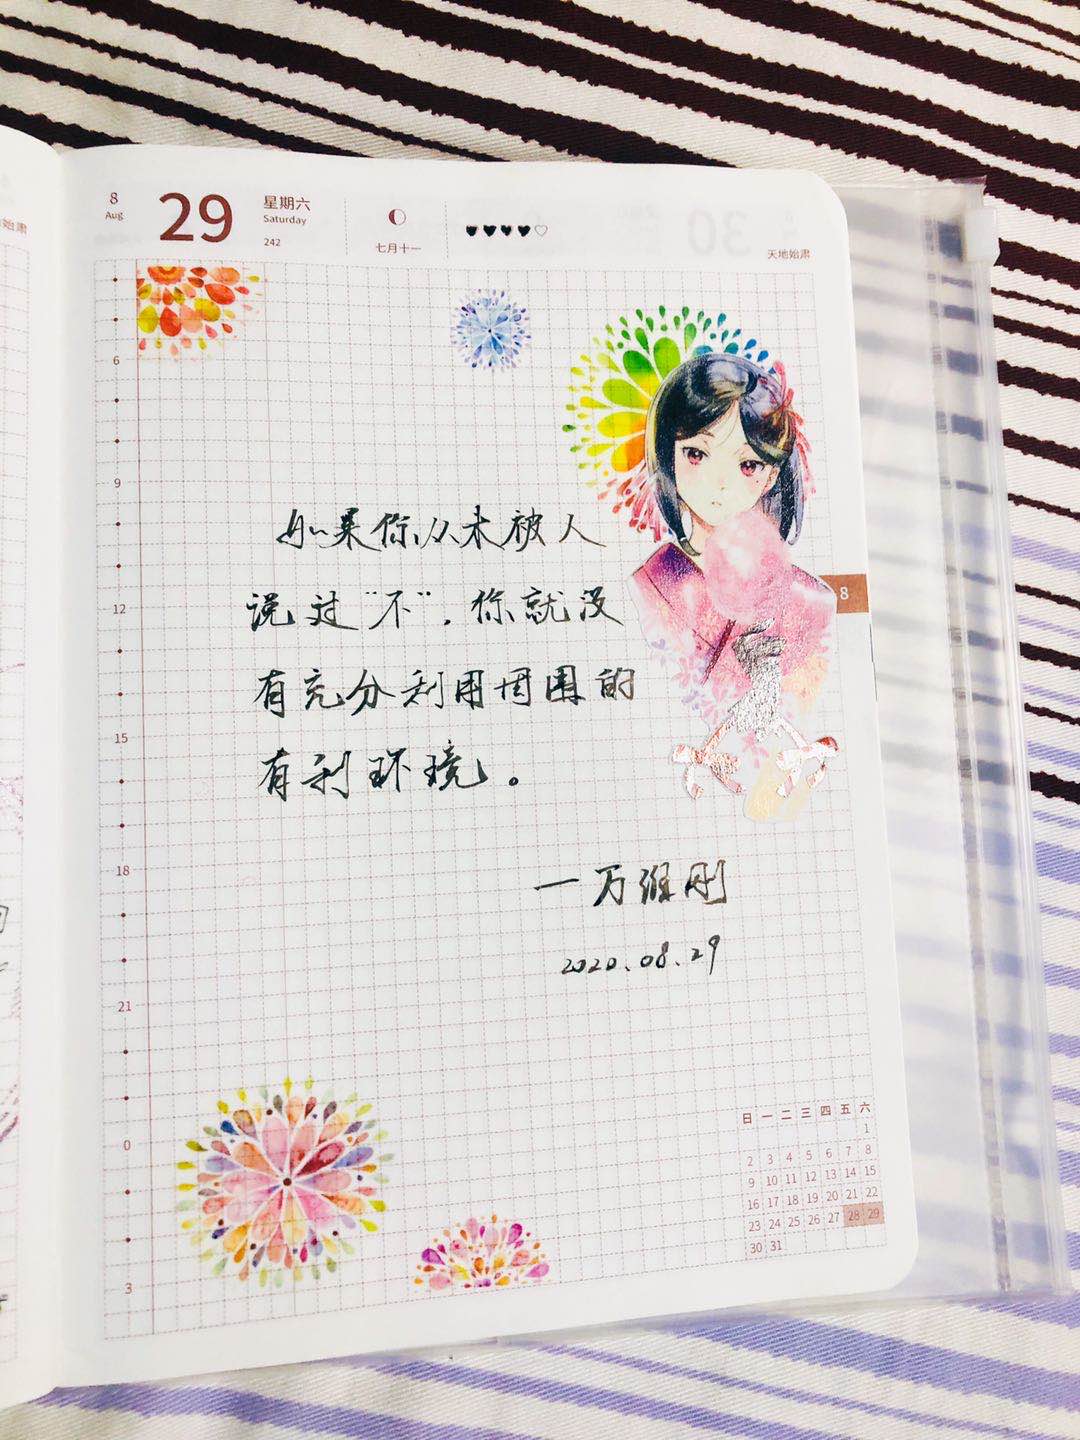 8
Aug
29
星期六
Saturday
242
七月十一
天地始肃
30
始肃
6
9
12
15
18
21
0
3
8
如果你从未被人
说过“不”,你就没
有充分利用周围的
有利环境。
一万维刚
2020.08.29
日 一 二 三 四 五 六
1
2 3 4 5 6 7 8
9 10 11 12 13 14 15
16 17 18 19 20 21 22
23 24 25 26 27 28 29
30 31